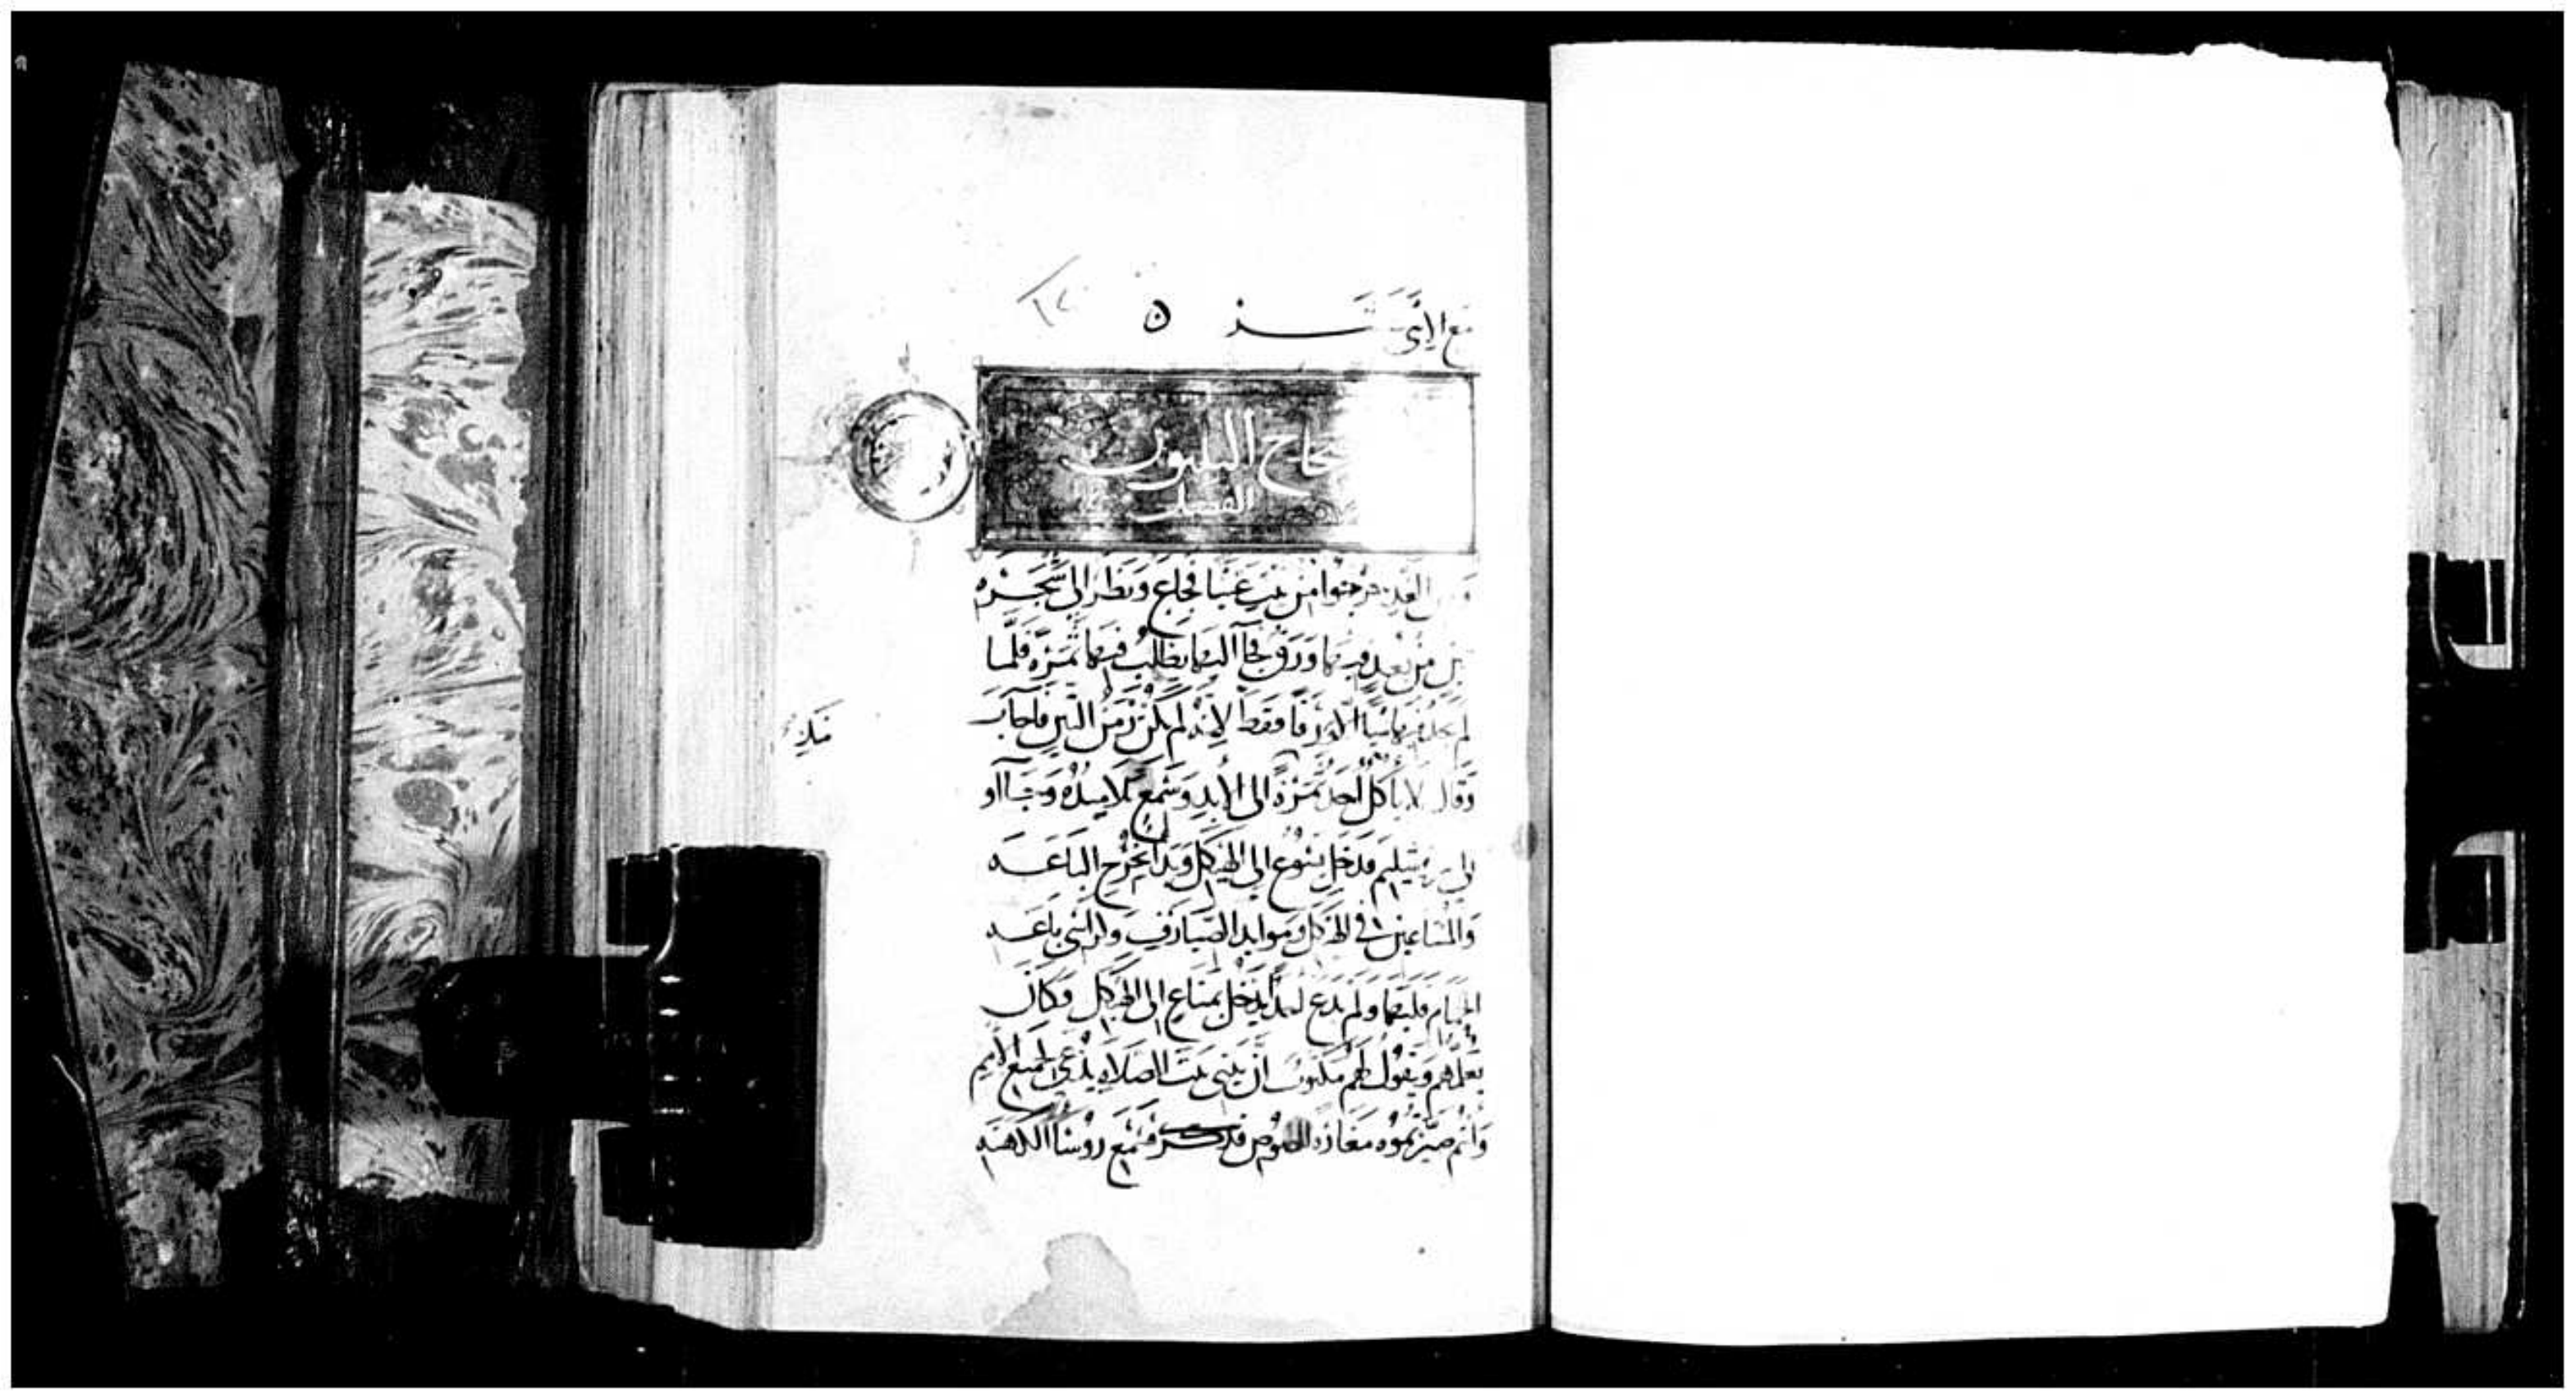 مع الاثني عشر ٥
حاح الثلثون
الفصل
الغد خرجوا من بيت عنيا فجاع ونظر الى شجرة
تين من بعد فيها ورق فجآ اليها يطلب فيها ثمرة فلما
لم يجد فيها شيًا الا ورقا فقط لانه لم يكن زمن التين فاجاب
وقال لا ياكل احد ثمرة الى الابد وسمع تلاميذه وجآاو
الى يروشليم فدخل يسوع الى الهيكل وبدا يخرج الباعه
والمتاعين في الهيكل وموايد الصيارف وكراسي باعه
الحمام قلبها ولم يدع احدا يدخل بمتاع الى الهيكل وكان
يعلمهم ويقول لهم مكتوب ان بيتي بيت الصلاه يدعى لجميع الامم
وانتم صيرتموه مغارة اللصوص فسمع روسا الكهنه